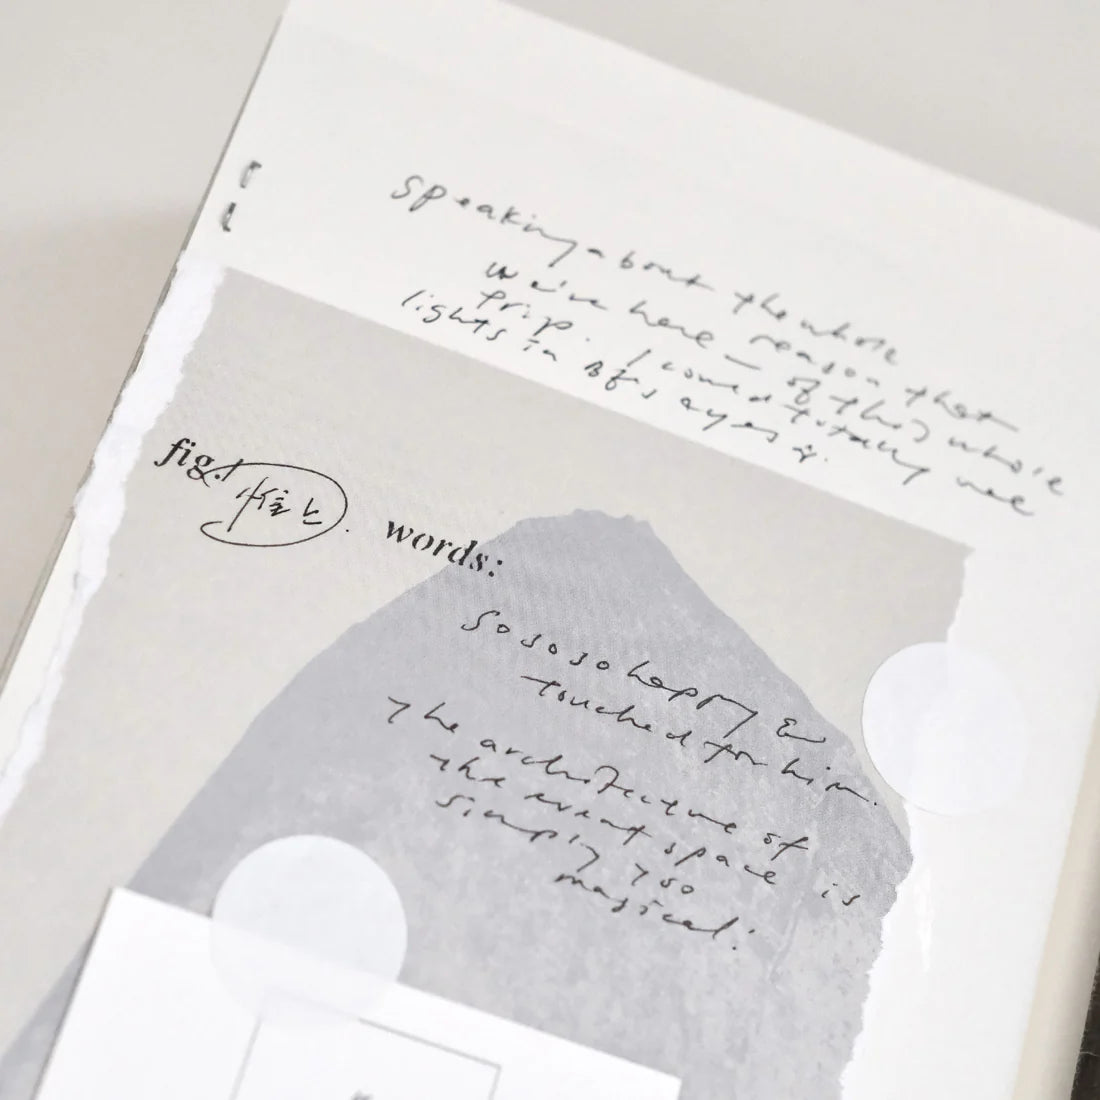 Speaking about the whole
we're here — reason that
trip. I could totally see
lights in BF's eyes
fig.1
words:
So so so happy &
touched for him.
The architecture of
the event space is
simply so
magical.